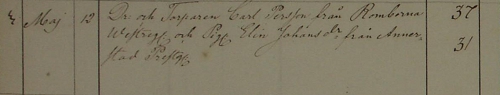 Maj 12 Dr. och Torparen Carl Persson från Romborna 37
Westreg. och Pig. Elin Johans dr från Anner- 31
stad Prestg.